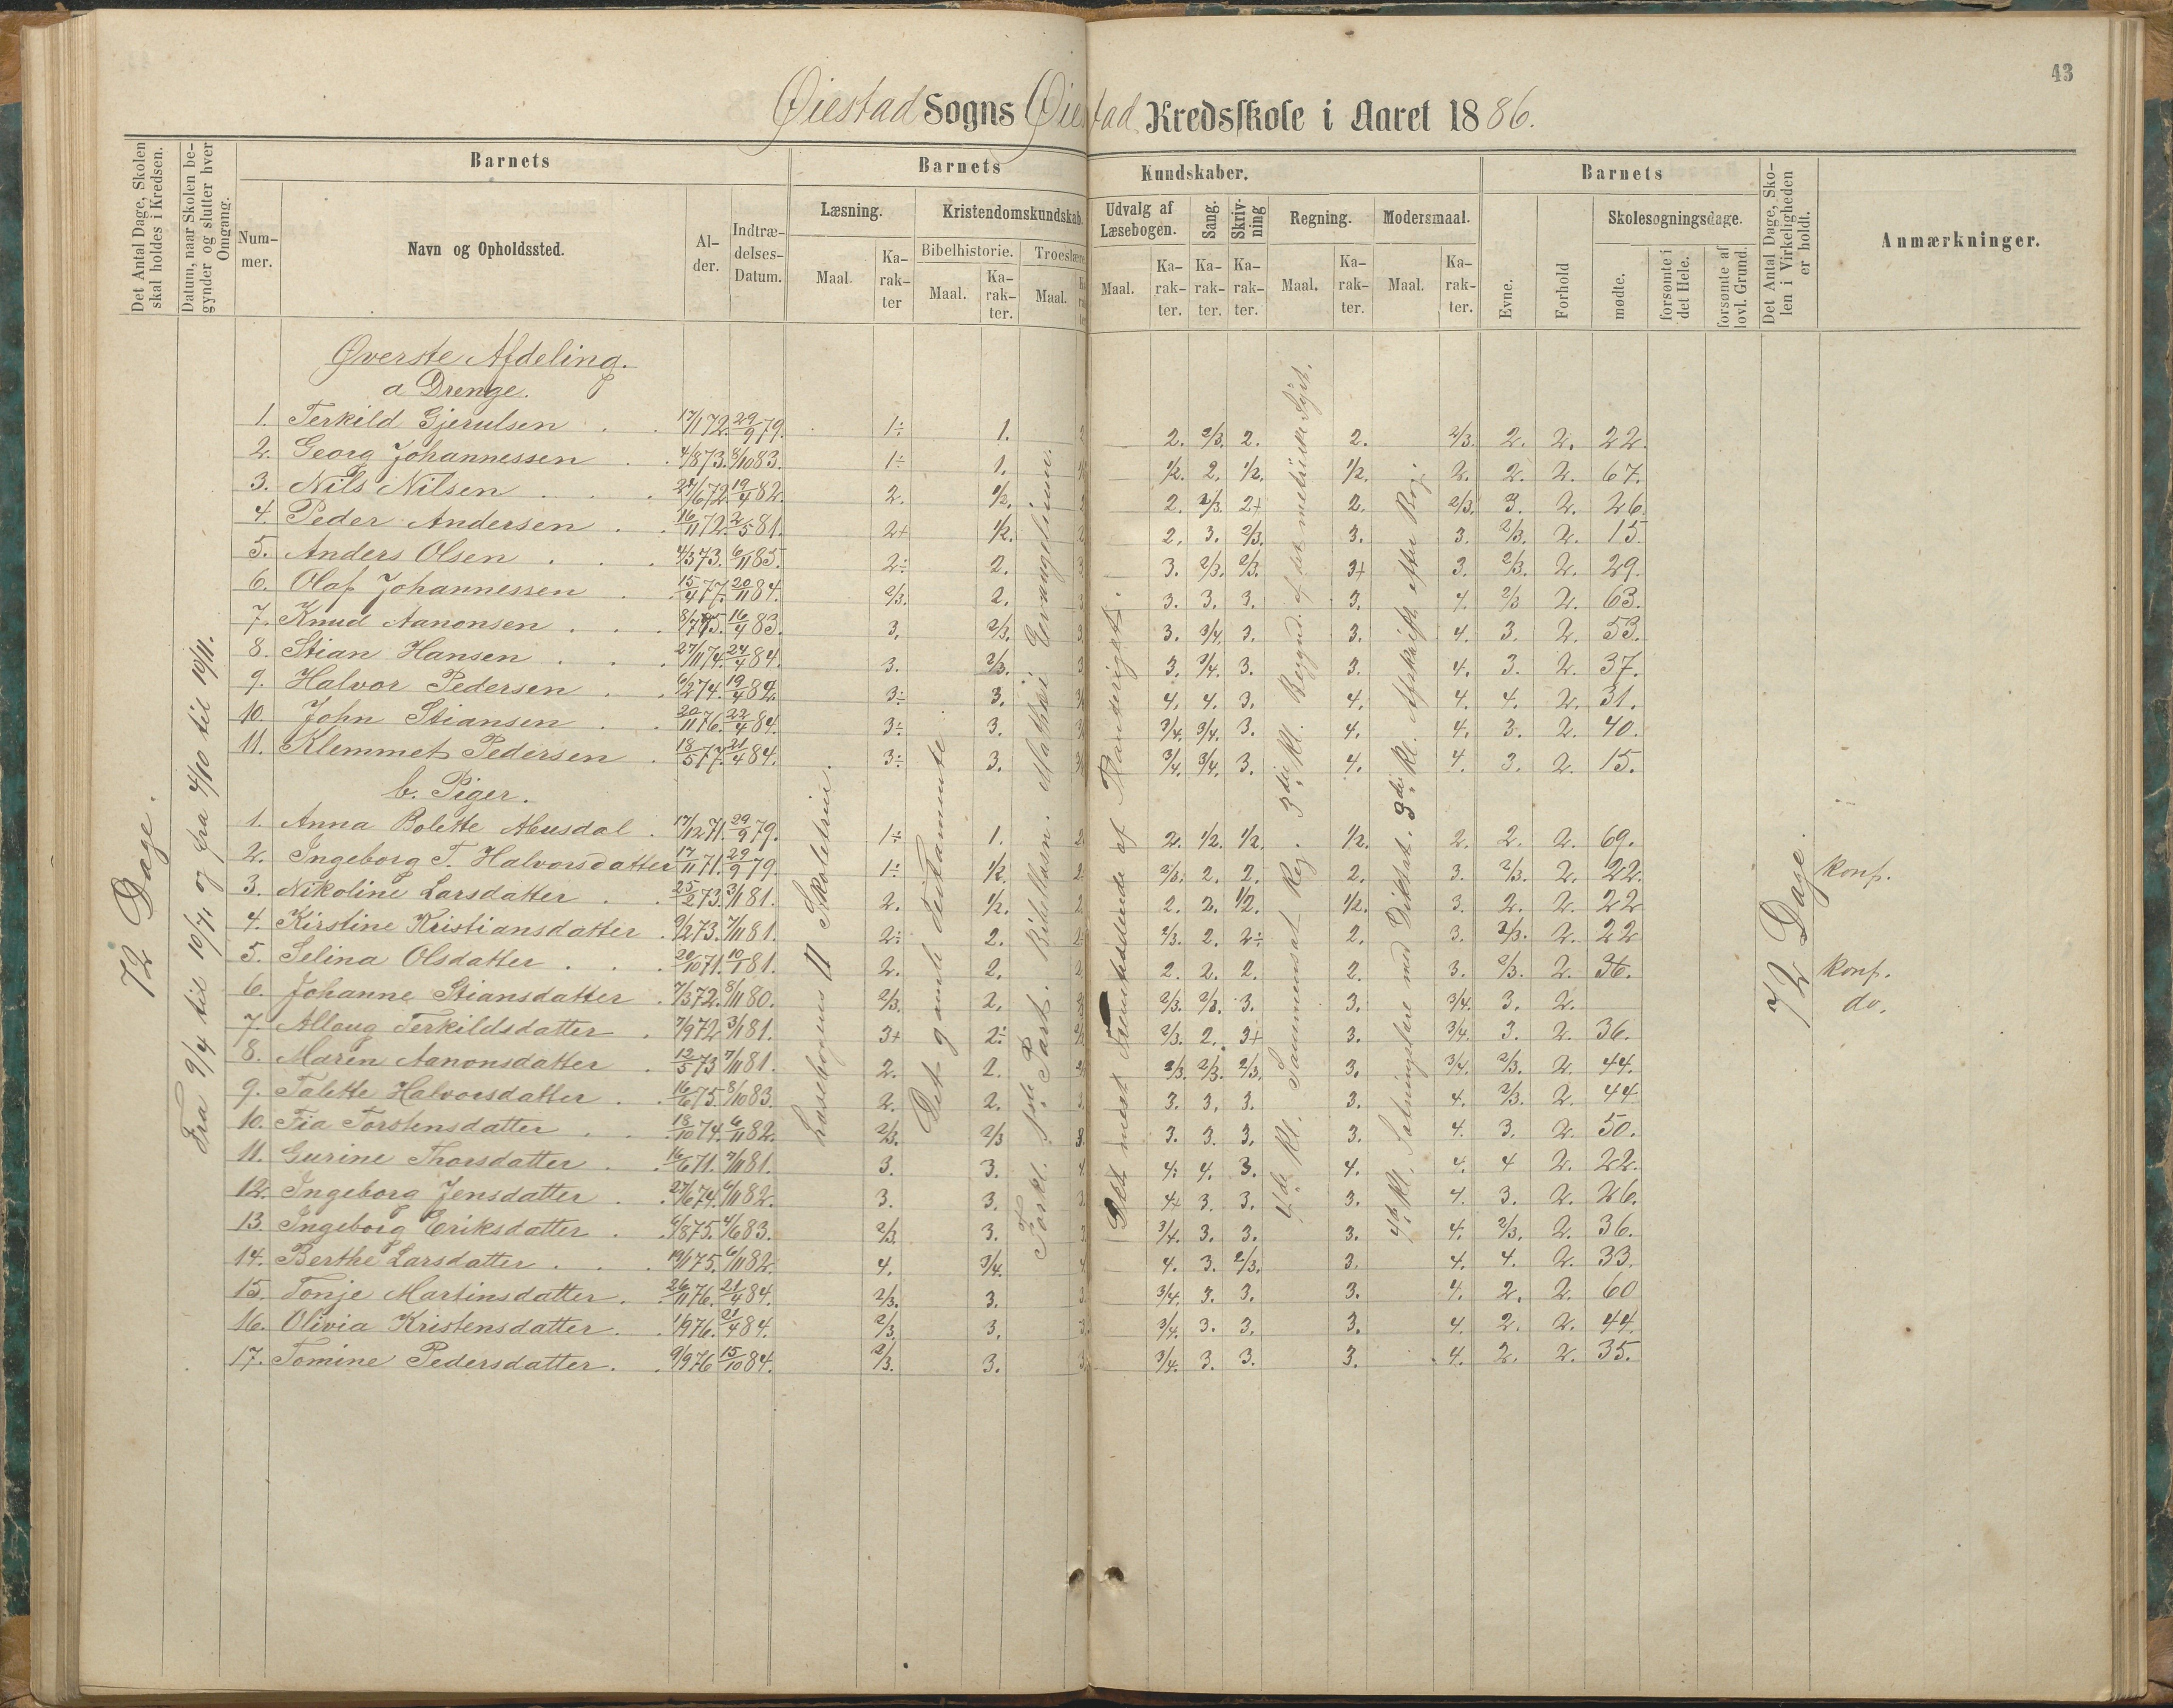 43
Øiestad Sogns Øiestad Kredsskole i Aaret 1886.
Det Antal Dage, Skolen skal holdes i Kredsen.
Datum, naar Skolen begynder og slutter hver Omgang.
Barnets
Nummer.
Navn og Opholdssted.
Alder.
Indtrædelses-Datum.
Barnets Kundskaber.
Læsning.
Maal.
Karakter
Kristendomskundskab.
Bibelhistorie.
Maal.
Karakter.
Troeslære
Maal.
Udvalg af Læsebogen.
Maal.
Karakter.
Sang.
Karakter.
Skrivning
Karakter.
Regning.
Maal.
Karakter.
Modersmaal.
Maal.
Karakter.
Barnets
Evne.
Forhold
Skolesøgningsdage.
mødte.
forsømte i det Hele.
forsømte af lovl. Grund.
Det Antal Dage, Skolen i Virkeligheden er holdt.
Anmærkninger.
72 Dage.
Fra 9/4 til 10/7 og fra 4/10 til 10/11.
Læsebogens II Skoletrin.
Det gamle Testammente.
Forkl. 1ste Part. Bibellæsn. Mathæi Evangelium.
Det mest Fremtrædende af Planteriget.
4de Kl. Sammensat Reg. 3die Kl. Begynd. af det metriske Syst.
4de Kl. Sætningslære med Diktat. 3die Kl. Afskrift efter Bog.
72 Dage.
Øverste Afdeling.
a Drenge.
1. Terkild Gjerulsen 17/1 72. 29/9 79. 1÷ 1. 2. 2/3. 2. 2. 2/3. 2. 2. 22.
2. Georg Johannessen 4/8 73. 8/10 83. 1÷ 1. 1/2. 2. 1/2. 1/2. 2. 2. 2. 67.
3. Nils Nilsen 24/6 72. 19/4 82. 2. 1/2. 2. 2/3. 2+ 2. 2/3. 3. 2. 26.
4. Peder Andersen 16/11 72. 2/5 81. 2+ 1/2. 2. 3. 2/3. 3. 3. 2/3. 2. 15.
5. Anders Olsen 4/3 73. 6/11 85. 2÷ 2. 3. 2/3. 2/3. 3+ 3. 2/3. 2. 29.
6. Olaf Johannessen 15/4 77. 20/11 84. 2/3. 2. 3. 3. 3. 3. 4. 2/3 2. 63.
7. Knud Aanonsen 8/7 75. 16/4 83. 3. 2/3. 3. 3/4. 3. 3. 4. 3. 2. 53.
8. Stian Hansen 27/11 74. 24/4 84. 3. 2/3. 3. 3/4. 3. 3. 4. 3. 2. 37.
9. Halvor Pedersen 6/2 74. 19/4 82. 3÷ 3. 4. 4. 3. 4. 4. 4. 2. 31.
10. John Stiansen 20/11 76. 22/4 84. 3÷ 3. 3/4. 3/4. 3. 4. 4. 3. 2. 40.
11. Klemmet Pedersen 18/5 77. 21/4 84. 3÷ 3. 3/4. 3/4. 3. 4. 4. 3. 2. 15.
b. Piger.
1. Anna Bolette Abusdal 17/12 71. 29/9 79. 1÷ 1. 2. 1/2. 1/2. 1/2. 2. 2. 2. 69.
2. Ingeborg T. Halvorsdatter 17/11 71. 29/9 79. 1÷ 1/2. 2/3. 2. 2. 2. 3. 2/3. 2. 22. konf.
3. Nikoline Larsdatter 25/2 73. 3/1 81. 2. 1/2. 2. 2. 1/2. 1/2. 3. 2. 2. 22
4. Kirstine Kristiansdatter 9/2 73. 7/11 81. 2÷ 2. 2/3. 2. 2÷ 2. 3. 2/3. 2. 22
5. Selina Olsdatter 20/10 71. 10/1 81. 2. 2. 2. 2. 2. 2. 3. 2/3. 2. 36. konf.
6. Johanne Stiansdatter 7/3 72. 8/11 80. 2/3. 2. 2/3. 2/3. 3. 3. 3/4. 3. 2. do.
7. Alloug Terkildsdatter 7/9 72 3/1 81. 3+ 2÷ 2/3. 2. 3+ 3. 3/4. 3. 2. 36.
8. Maren Aanonsdatter 12/5 73 7/11 81. 2. 2. 2/3. 2/3. 2/3. 3. 3/4. 2/3. 2. 44.
9. Talette Halvorsdatter 16/6 75. 8/10 83. 2. 2. 3. 3. 3. 3. 4. 2/3. 2. 44
10. Fia Torstensdatter 18/10 74. 6/11 82. 2/3. 2/3 3. 3. 3. 3. 4. 3. 2. 50.
11. Gurine Thorsdatter 16/6 71. 7/11 81. 3. 3. 4. 4. 3. 4. 4. 4 2. 22.
12. Ingeborg Jensdatter 27/6 74. 6/11 82. 3. 3. 4+ 3. 3. 3. 4. 3. 2. 26.
13. Ingeborg Eriksdatter 6/8 75. 4/6 83. 2/3. 3. 3/4. 3. 3. 3. 4. 2/3. 2. 36.
14. Berthe Larsdatter 19/1 75. 6/11 82. 4. 3/4. 4. 3. 2/3. 3. 4. 4. 2. 33.
15. Tonje Martinsdatter 26/11 76. 21/4 84. 2/3. 3. 3/4. 3. 3. 3. 4. 2. 2. 60
16. Olivia Kristensdatter 1/9 76. 21/4 84. 2/3. 3. 3/4. 3. 3. 3. 4. 2. 2. 44.
17. Tomine Pedersdatter 9/9 76 15/10 84. 2/3. 3. 3/4. 3. 3. 3. 4. 2. 2. 35.